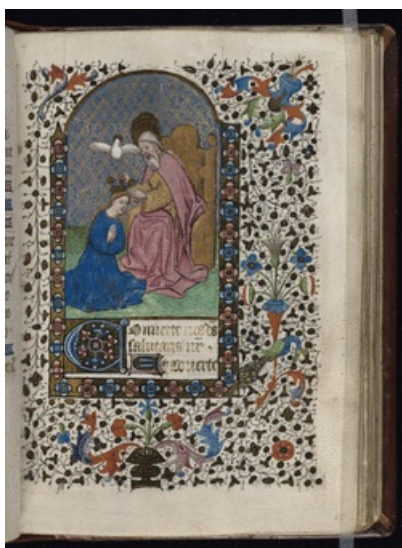 Converte nos ds
salutaris nr̄.
Et averte